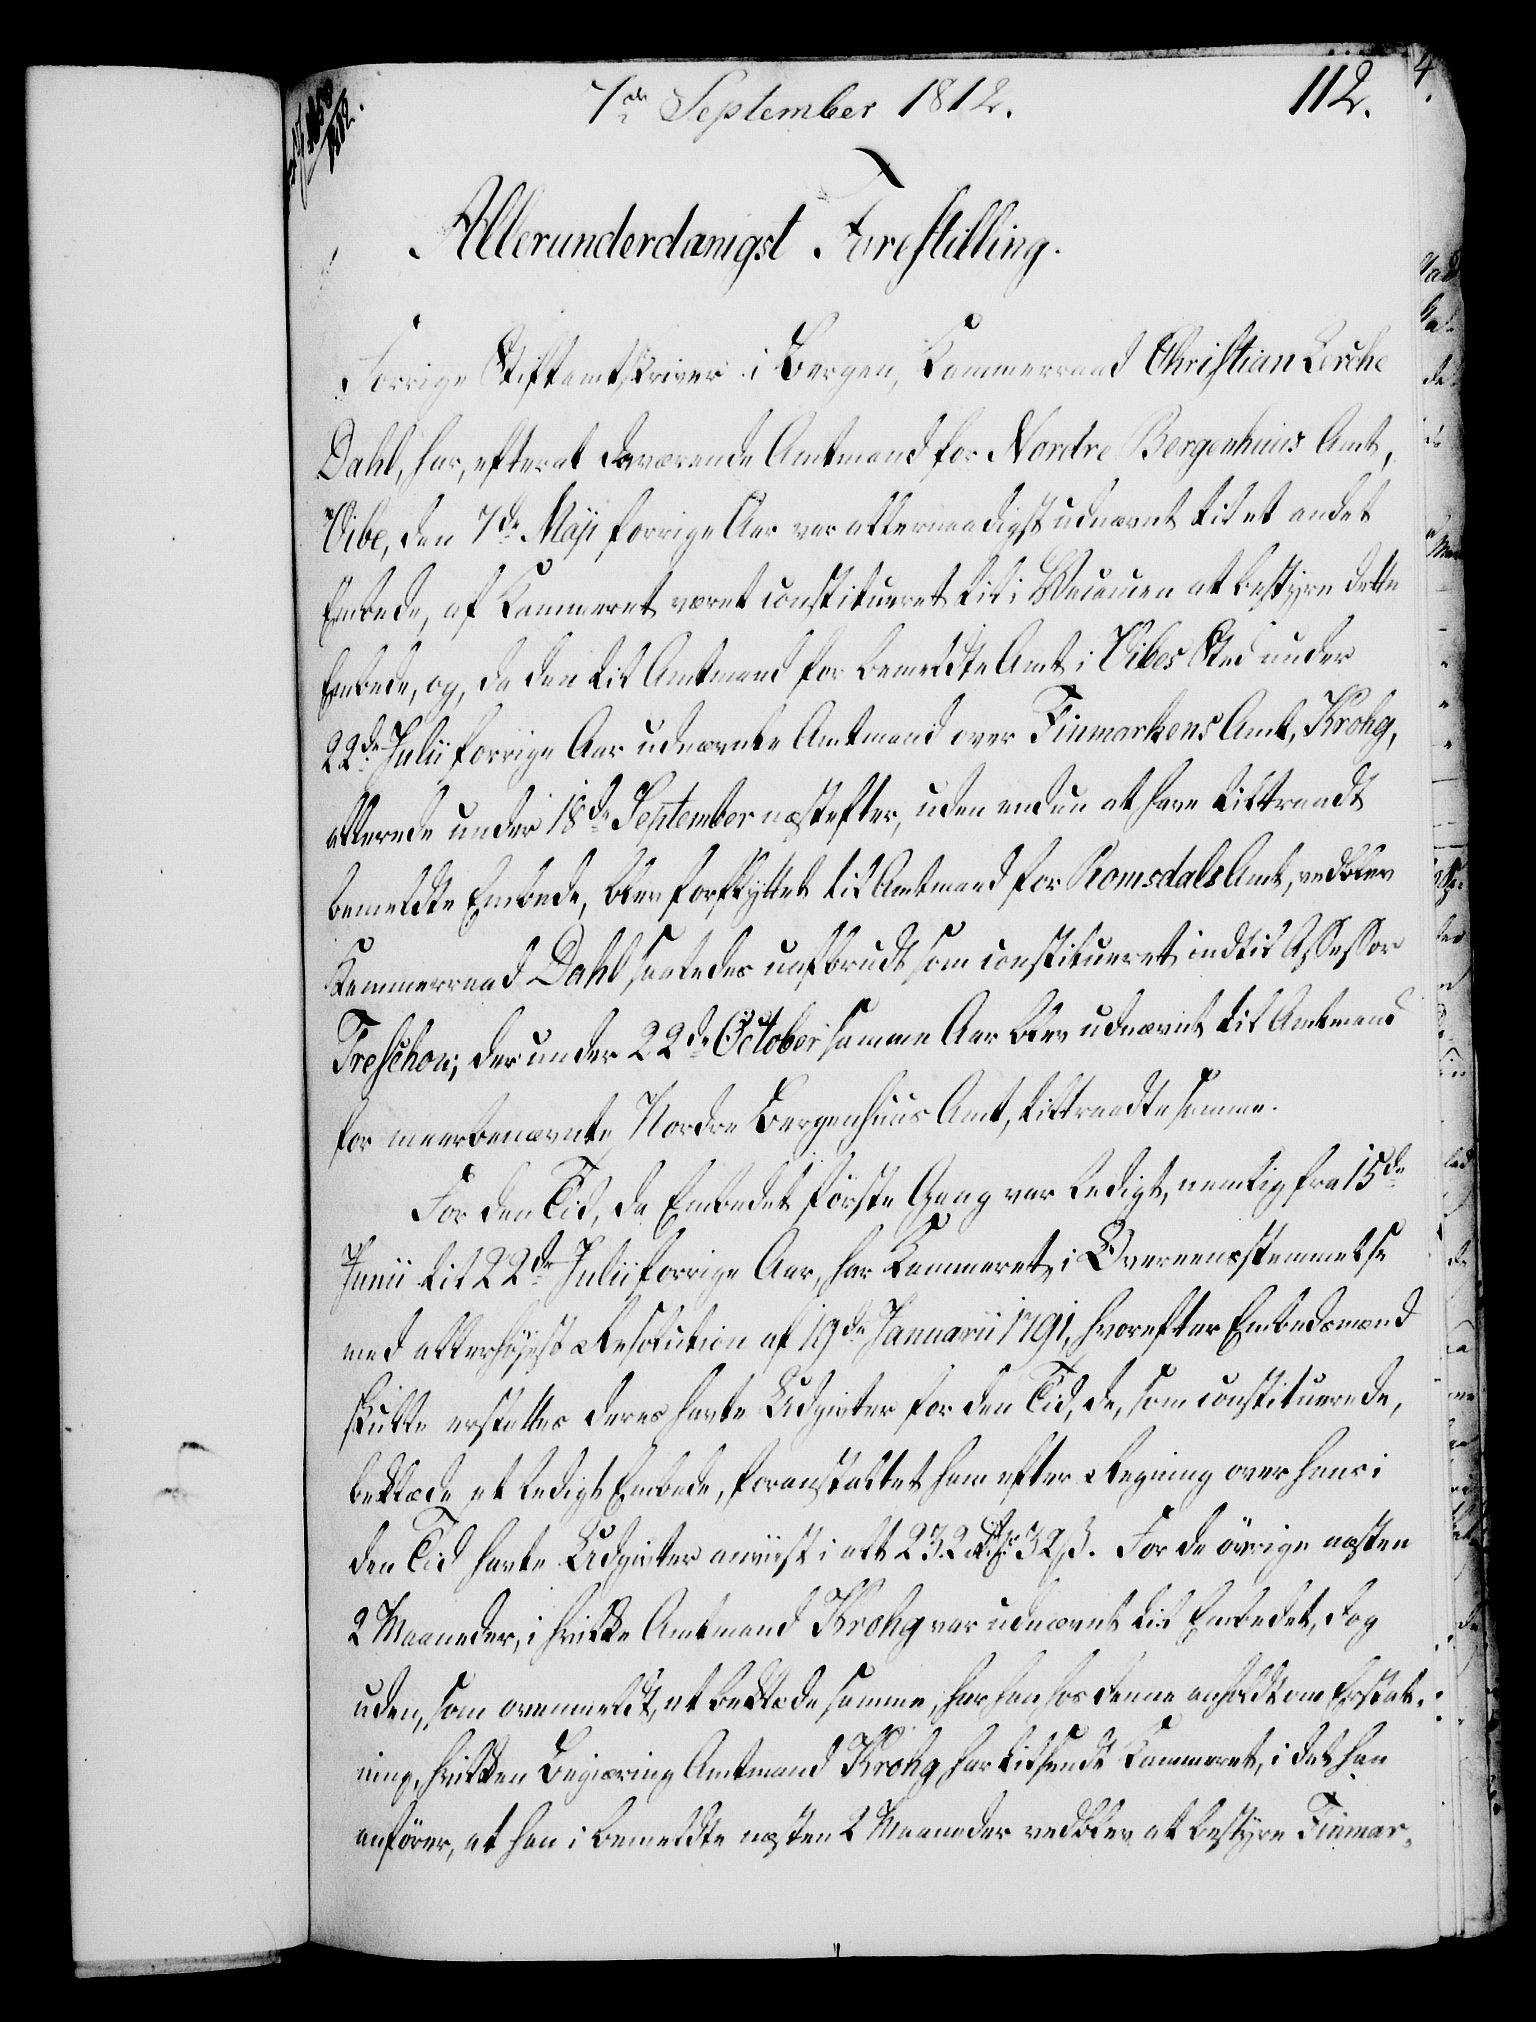 7de September 1812.
112.
Allerunderdanigst Forestilling.
Forrige Stiftamtskriver i Bergen, Kammerraad Christian Lerche
Dahl, har, efterat daværende Amtmand for Nordre Bergenhuus Amt,
Vibe, den 7de Maji forrige Aar var allernaadigst udnævnt til et andet
Embede, af Kammeret været constitueret til i Vacancen at bestyre dette
Embede, og, da den til Amtmand for bemeldte Amt i Vibes Sted under
22de Julii forrige Aar udnævnte Amtmand over Finmarkens Amt, Krohg,
allerede under 18de September næstefter, uden endnu at have tiltraadt
bemeldte Embede, blev forflyttet til Amtmand for Romsdals Amt, vedblev
Kammerraad Dahl saaledes uafbrudt som constitueret indtil Assessor
Treschow, der under 22de October samme Aar blev udnævnt til Amtmand
for meerbenævnte Nordre Bergenhuus Amt, tiltraadte samme.
For den Tid, da Embedet første Gang var ledigt, nemlig fra 15de
Junii til 22de Julii forrige Aar, har Kammeret, i Overeensstemmelse
med allerhøyest Resolution af 19de Januarii 1791, hvorefter Embedsmænd
skulle erstattes deres havte Udgivter for den Tid, de, som constituerede,
beklæde et ledigt Embede, foranstaltet ham efter Regning over hans i
den Tid havte Udgivter anviist i alt 232 Rdr 32 s. For de øvrige næsten
2 Maaneder, i hvilke Amtmand Krohg var udnævnt til Embedet, dog
uden, som ovenmeldt, at beklæde samme, har han hos denne anholdt om Erstat-
ning, hvilken Begiæring Amtmand Krohg har tilsendt Kammeret, i det han
anfører, at han i bemeldte næsten 2 Maaneder vedblev at bestyre Finmar-